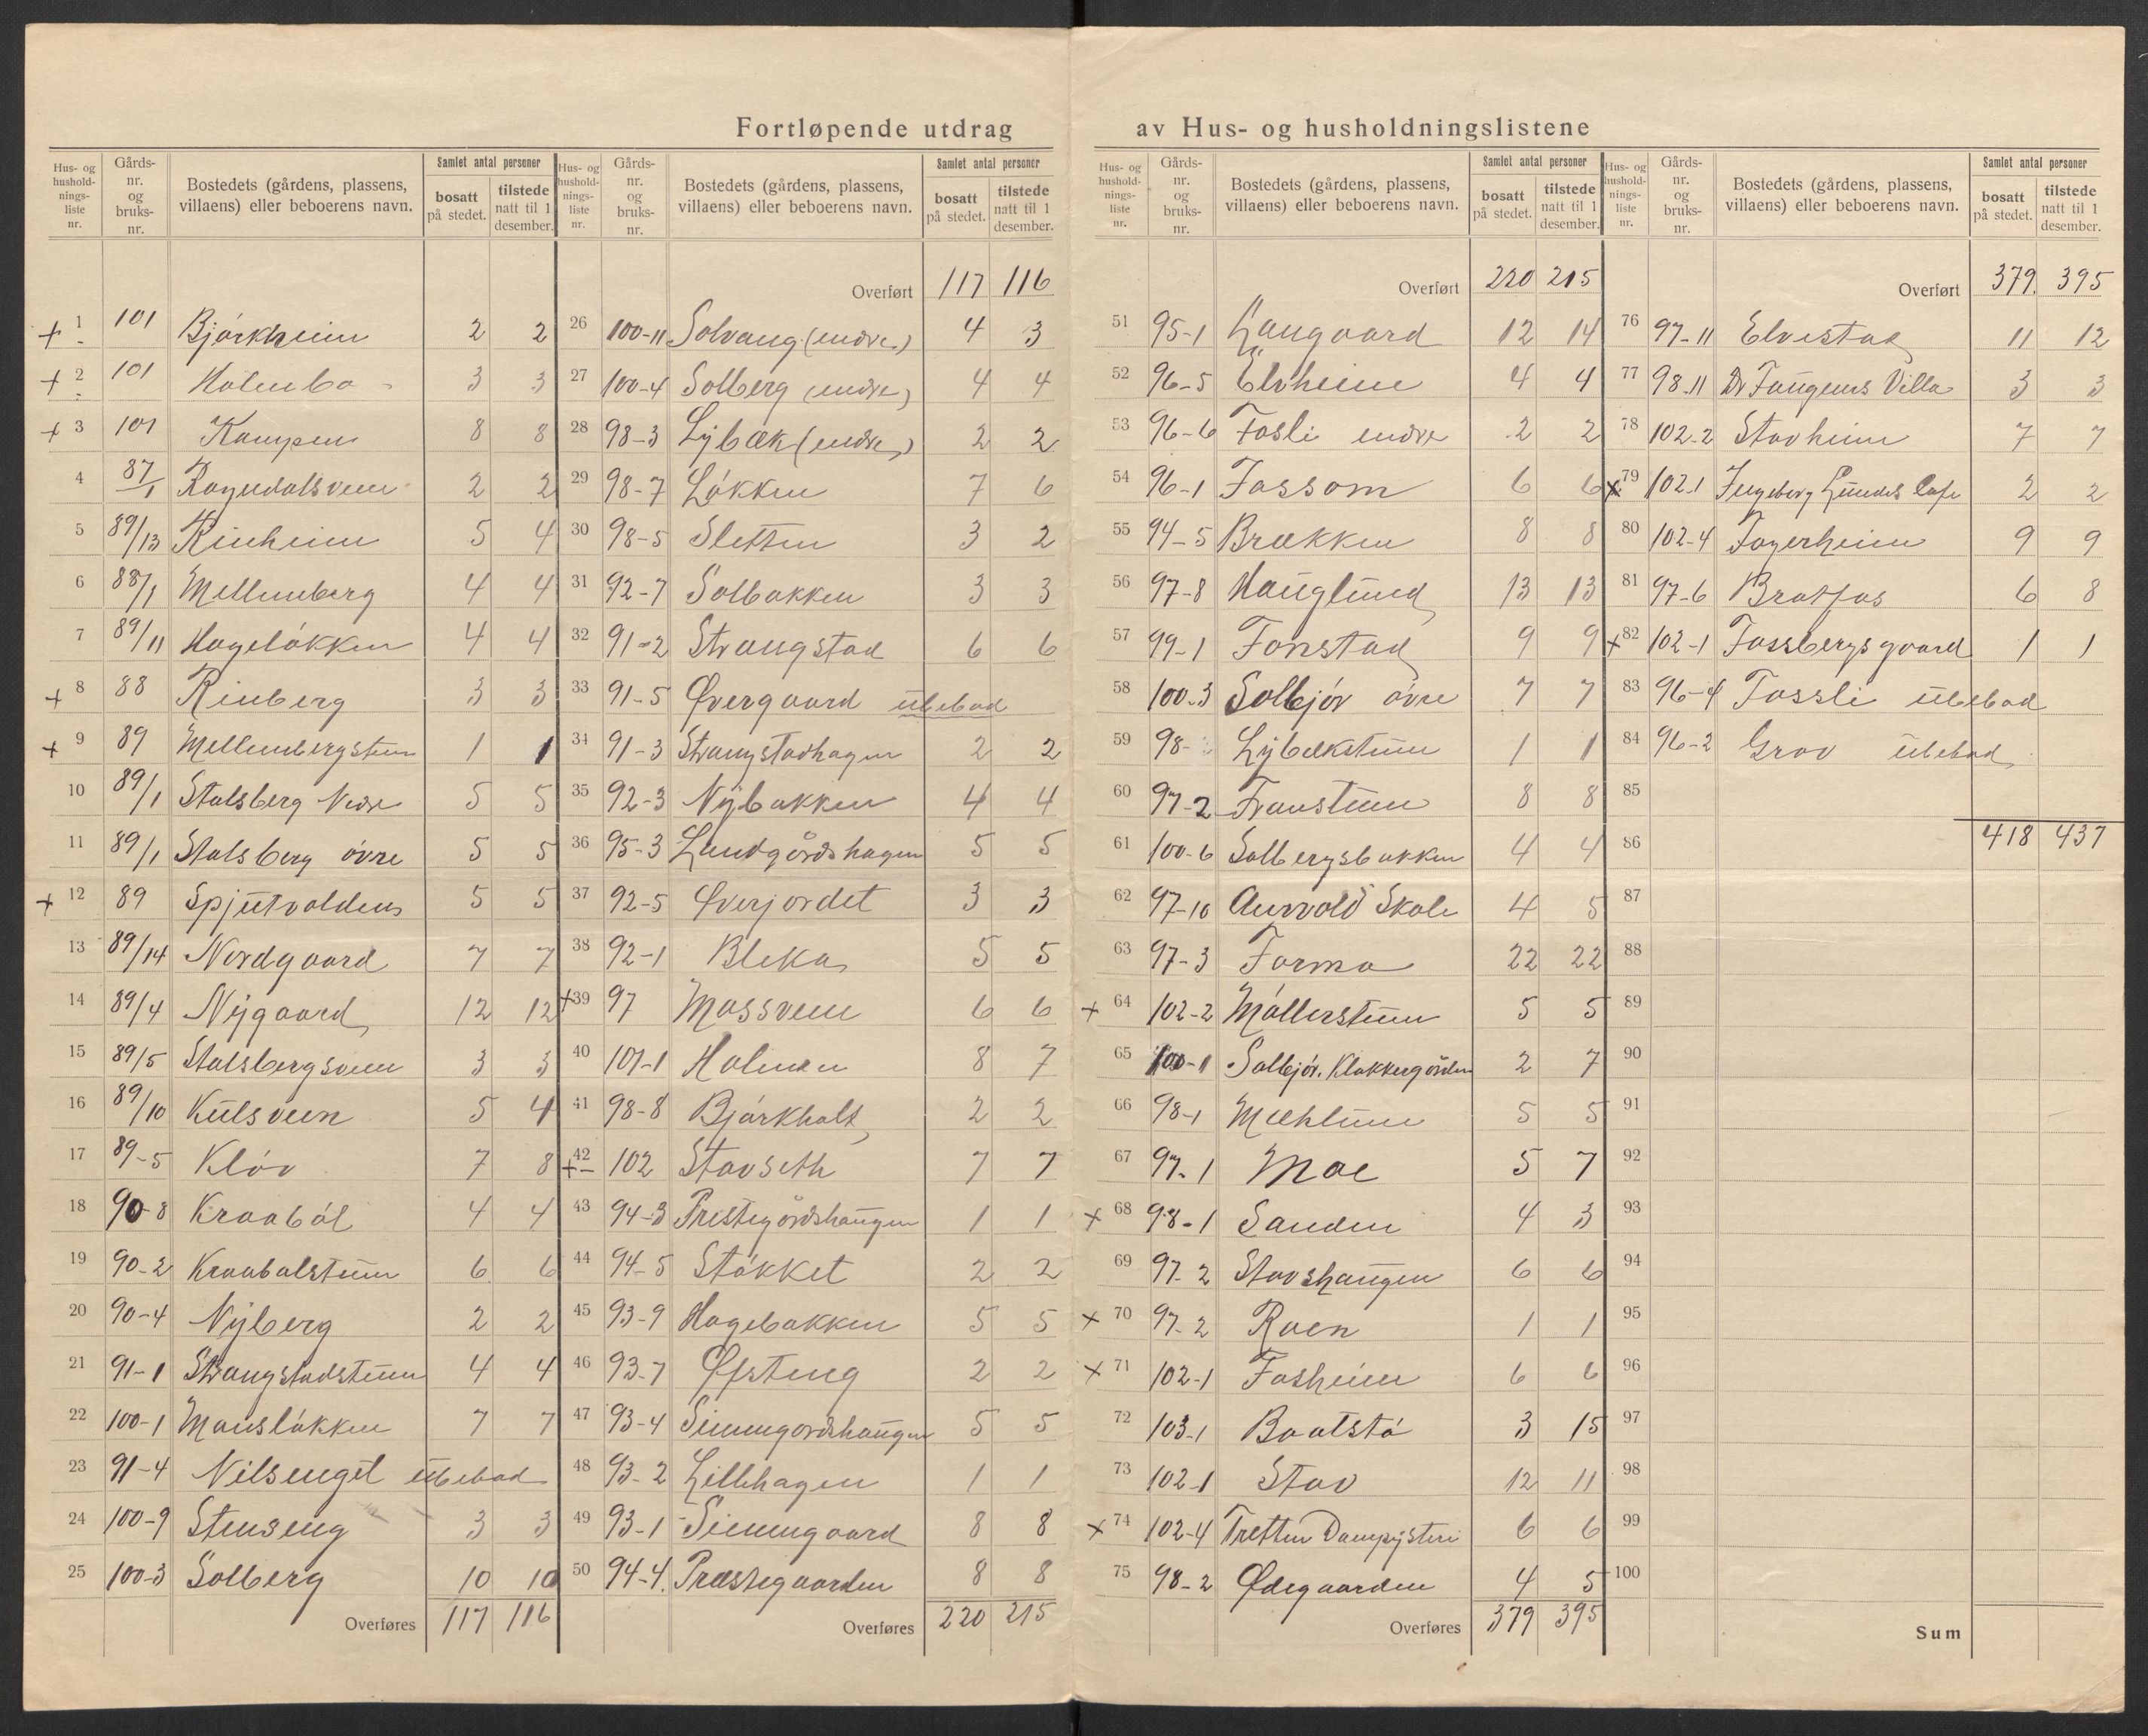 Fortløpende utdrag av Hus- og husholdningslistene
Hus- og husholdnings-liste nr. | Gårds-nr. og bruks-nr. | Bostedets (gårdens, plassens, villaens) eller beboerens navn. | Samlet antal personer | bosatt på stedet. | tilstede natt til 1 desember.
+ 1 101 Bjørkheim 2 2
+ 2 101 Holmbo 3 3
+ 3 101 Kampen 8 8
4 87/1 Rogndalsveen 2 2
5 89/13 Rinheim 5 4
6 88/1 Mellemberg 4 4
7 89/11 Hageløkken 4 4
+ 8 88 Rinberg 3 3
+ 9 89 Mellembergstuen 1 1
10 89/1 Stalsberg Nedre 5 5
11 89/1 Stalsberg øvre 5 5
+ 12 89 Spjutvolden 5 5
13 89/14 Nordgaard 7 7
14 89/4 Nygaard 12 12
15 89/5 Stalsbergsveen 3 3
16 89/10 Kulsveen 5 4
17 89-5 Kløv 7 8
18 90-8 Kraabøl 4 4
19 90-2 Kraabølstuen 6 6
20 90-4 Nyberg 2 2
21 91-1 Strangstadstuen 4 4
22 100-1 Mausløkken 7 7
23 91-4 Nilsenget ubebod
24 100-9 Stenseng 3 3
25 100-3 Solberg 10 10
Overføres 117 116
Hus- og husholdnings-liste nr. | Gårds-nr. og bruks-nr. | Bostedets (gårdens, plassens, villaens) eller beboerens navn. | Samlet antal personer | bosatt på stedet. | tilstede natt til 1 desember.
Overført 117 116
26 100-11 Solvang (nedre) 4 3
27 100-4 Solberg (nedre) 4 4
28 98-3 Lybæk (nedre) 2 2
29 98-7 Løkken 7 6
30 98-5 Sletten 3 2
31 92-7 Solbakken 3 3
32 91-2 Strangstad 6 6
33 91-5 Øvergaard ubebod
34 91-3 Strangstadhagen 2 2
35 92-3 Nybakken 4 4
36 95-3 Landgårdshagen 5 5
37 92-5 Øverjordet 3 3
38 92-1 Bleka 5 5
+ 39 97 Mossveen 6 6
40 101-1 Holmen 8 7
41 98-8 Bjørkholt 2 2
+ 42 102 Stavseth 7 7
43 94-3 Prestegårdshaugen 1 1
44 94-5 Støkket 2 2
45 93-9 Hagebakken 5 5
46 93-7 Øfsteng 2 2
47 93-4 Simmgårdshaugen 5 5
48 93-2 Lillehagen 1 1
49 93-1 Simmgaard 8 8
50 94-4. Præstegaarden 8 8
Overføres 220 215
Hus- og husholdnings-liste nr. | Gårds-nr. og bruks-nr. | Bostedets (gårdens, plassens, villaens) eller beboerens navn. | Samlet antal personer | bosatt på stedet. | tilstede natt til 1 desember.
Overført 220 215
51 95-1 Langaard 12 14
52 96-5 Elvheim 4 4
53 96-6 Fosli nedre 2 2
54 96-1 Fossom 6 6
55 94-5 Brækken 8 8
56 97-8 Hauglund 13 13
57 99-1 Fonstad 9 9
58 100-3 Solbjør øvre 7 7
59 98- Lybækstuen 1 1
60 97-2 Fraustuen 8 8
61 100-6 Solbergsbakken 4 4
62 97-10 Aurvold Skole 4 5
63 97-3 Formo 22 22
+ 64 102-2 Møllerstuen 5 5
65 100-1 Solbjør. Klokkergården 2 7
66 98-1 Mæhlum 5 5
67 97-1 Moe 5 7
+ 68 98-1 Sanden 4 3
69 97-2 Stavshaugen 6 6
+ 70 97-2 Roen 1 1
+ 71 102-1 Fosheim 6 6
72 103-1 Baatstø 3 15
73 102-1 Stav 12 11
+ 74 102-4 Tretten Dampysteri 6 6
75 98-2 Ødegaarden 4 5
Overføres 379 395
Hus- og husholdnings-liste nr. | Gårds-nr. og bruks-nr. | Bostedets (gårdens, plassens, villaens) eller beboerens navn. | Samlet antal personer | bosatt på stedet. | tilstede natt til 1 desember.
Overført 379. 395
76 97-11 Elvestad 11 12
77 98-11 Dr Faugens Villa 3 3
78 102-2 Stavheim 7 7
x 79 102-1 Ingeborg Lundes Cafe 2 2
80 102-4 Fagerheim 9 9
81 97-6 Bratfos 6 8
+ 82 102-1 Fossbergsgaard 1 1
83 96-4 Fossli ubebod
84 96-2 Grov ubebod
85
86 418 437
87
88
89
90
91
92
93
94
95
96
97
98
99
100
Sum